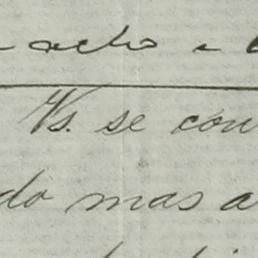 acho e
Vs. se con
do mas a